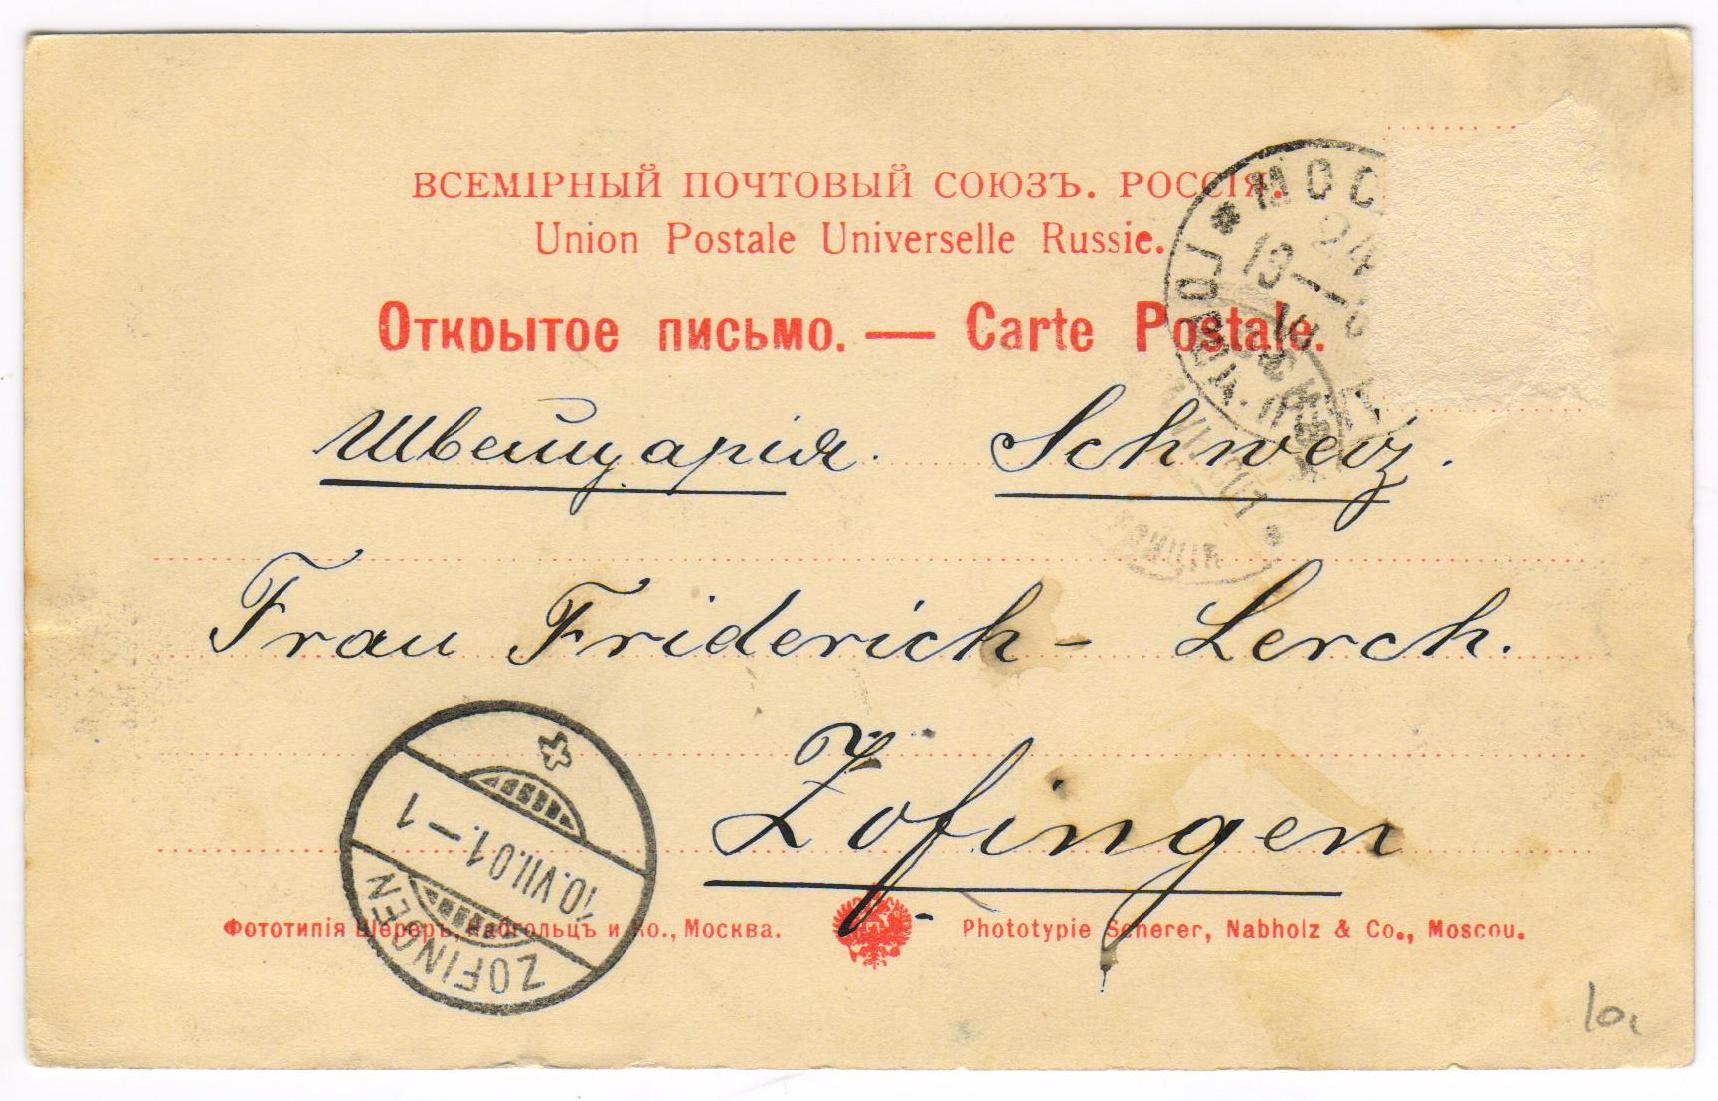 ВСЕМІРНЫЙ ПОЧТОВЫЙ СОЮЗЪ. РОССІЯ.
Union Postale Universelle Russie.
Открытое письмо. — Carte Postale.
МОСК
24
13
VII
Швейцарія. Schweiz.
Frau Friderich - Lerch.
Zofingen
10.VII.01.-1
ZOFINGEN
Фототипія Шереръ, Набгольцъ и Ко., Москва. Phototypie Scherer, Nabholz & Co., Moscou.